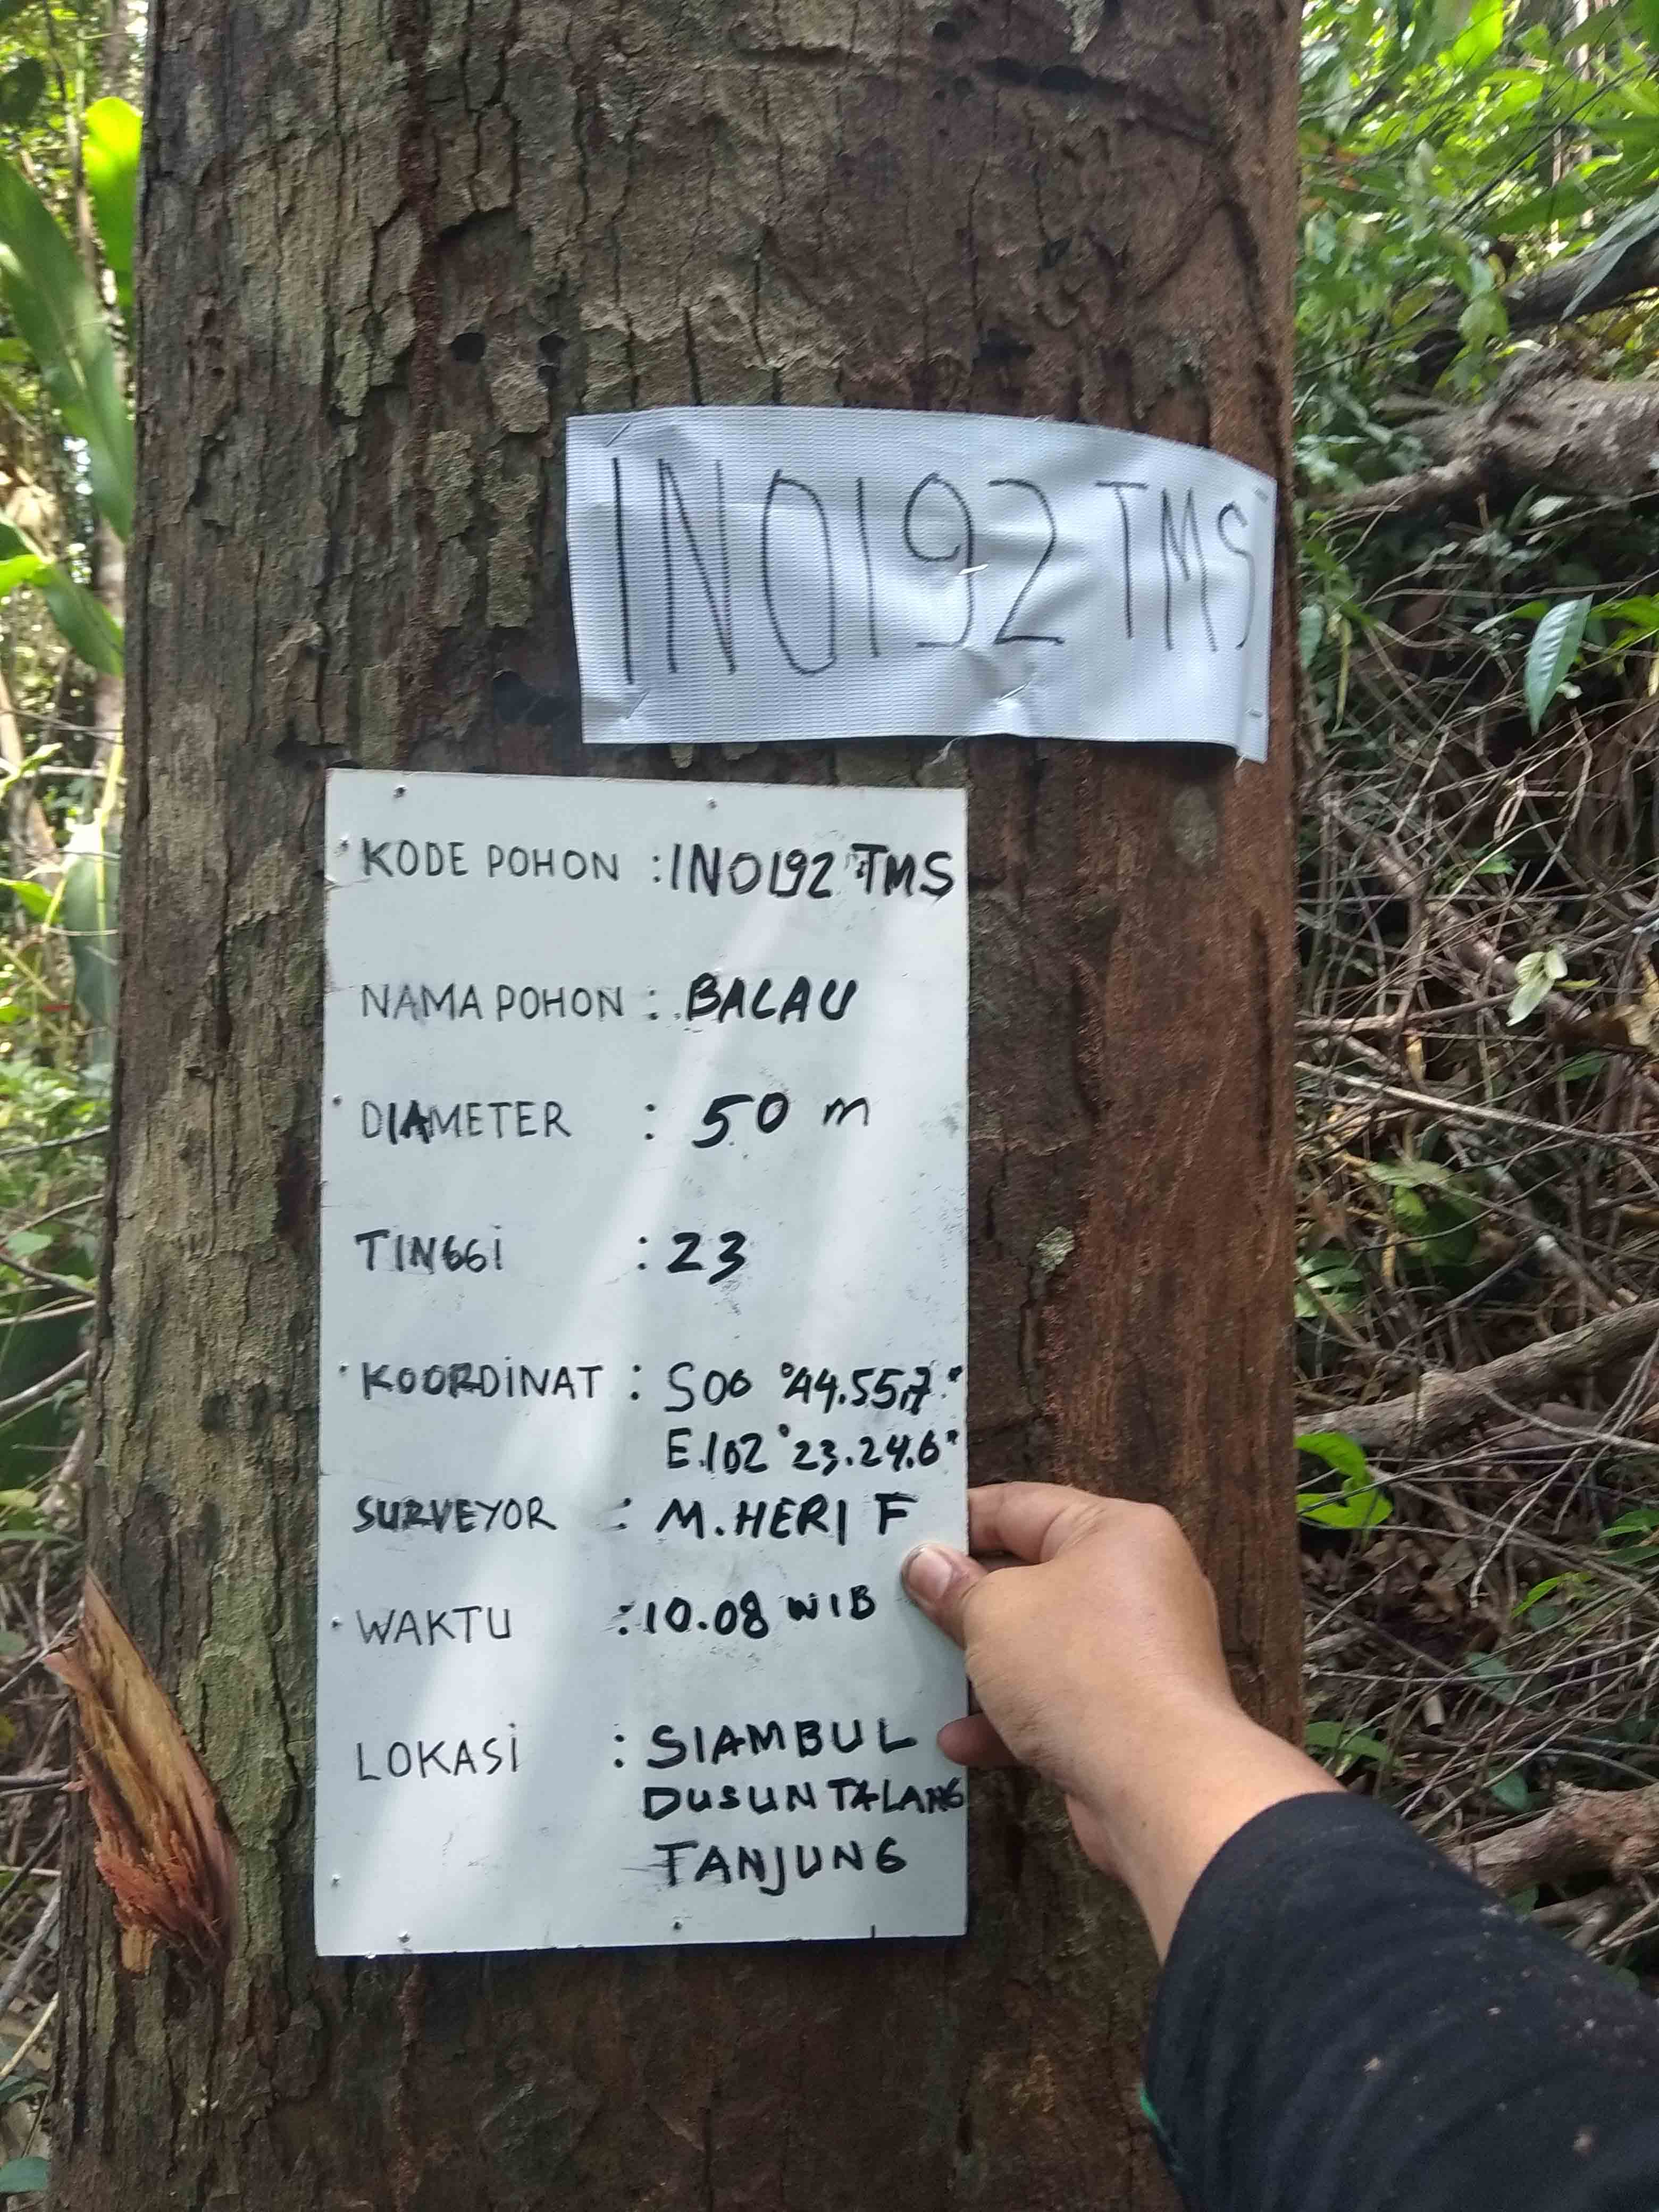 INO192 TMS
KODE POHON : INO192 TMS
NAMA POHON : BALAU
DIAMETER : 50 m
TINGGi : 23
KOORDiNAT : S00 °44.55,7"
E.102°23.24.6"
SURVEYOR : M.HERI F
WAKTU : 10.08 WIB
LOKASi : SIAMBUL
DUSUN TALANG
TANJUNG